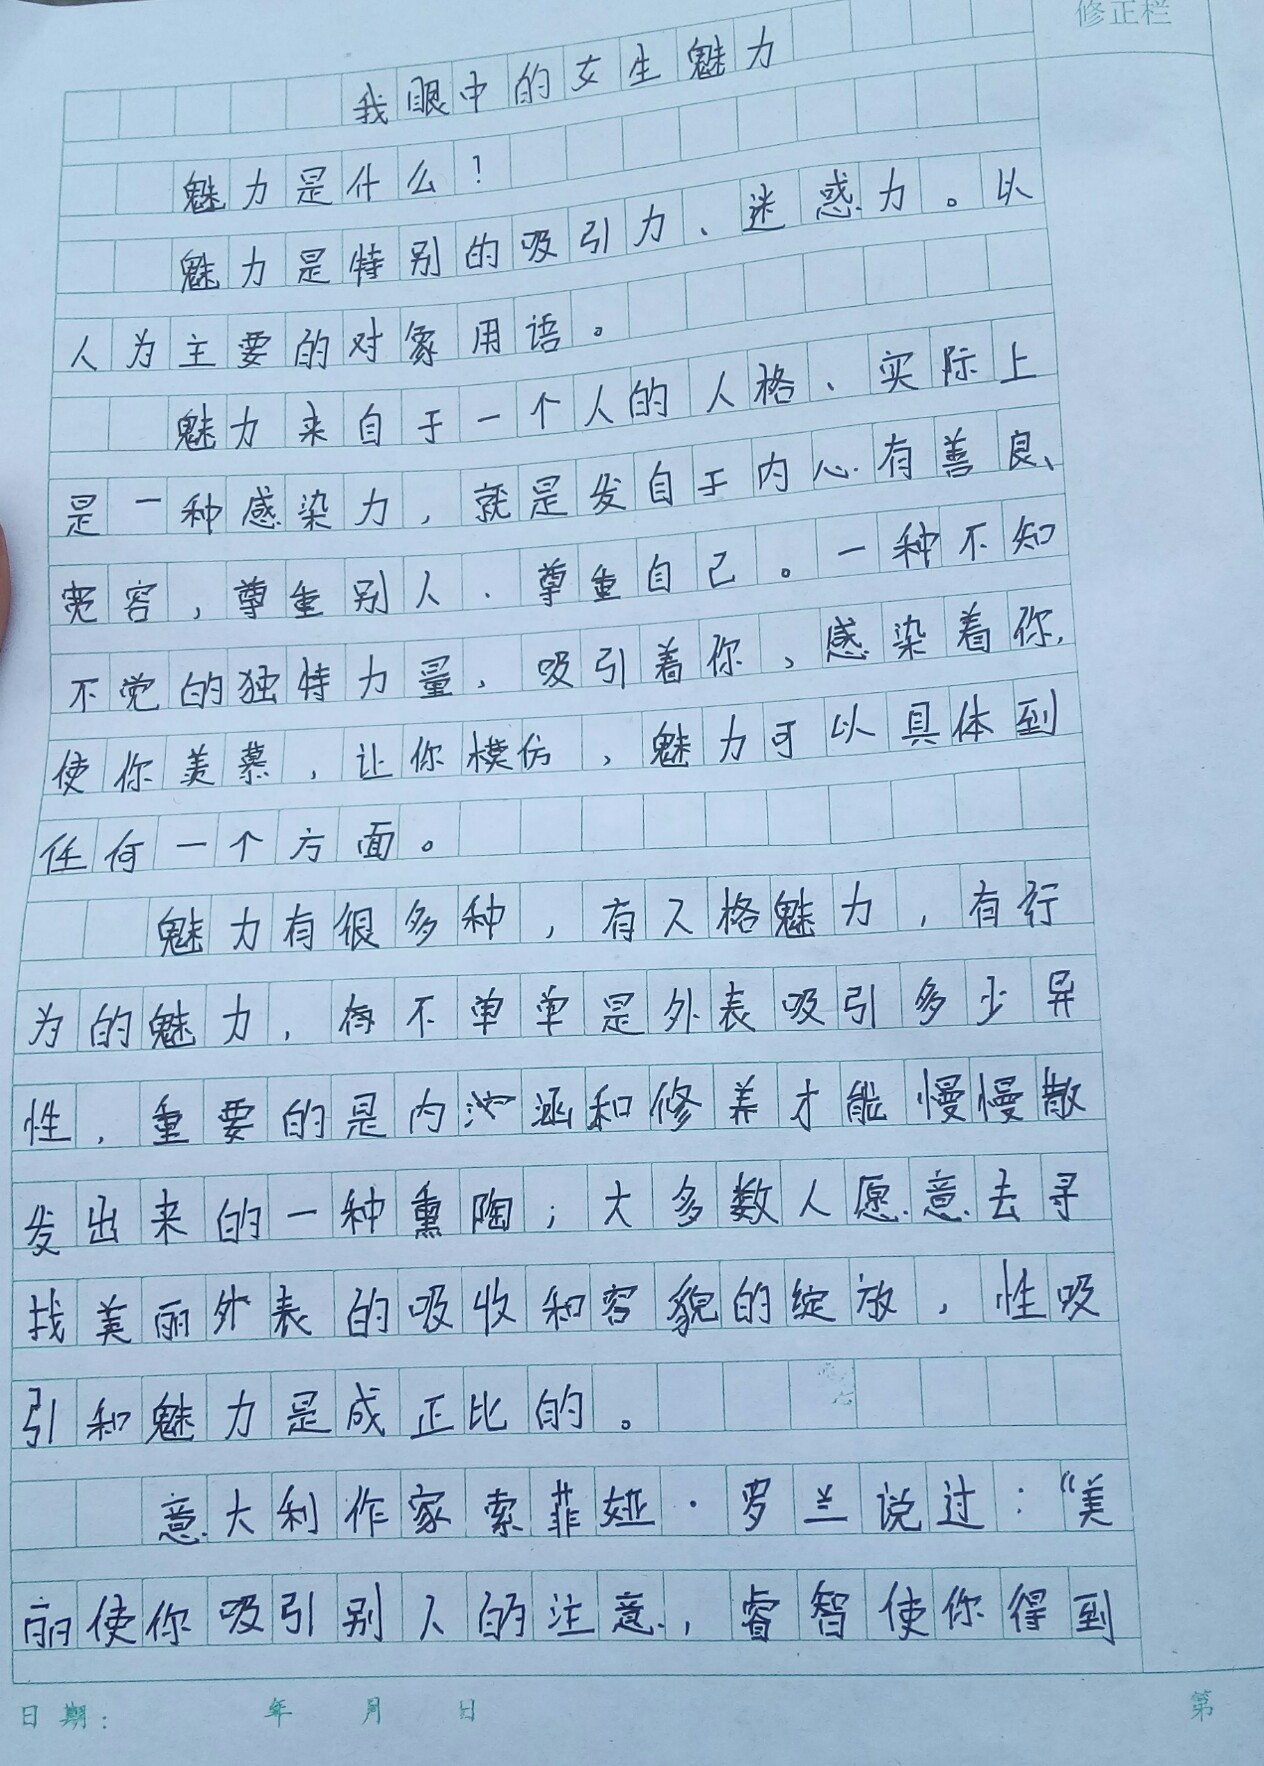 修正栏
我眼中的女生魅力
魅力是什么！
魅力是特别的吸引力、迷惑力。以
人为主要的对象用语。
魅力来自于一个人的人格、实际上
是一种感染力，就是发自于内心有善良、
宽容，尊重别人、尊重自己。一种不知
不觉的独特力量，吸引着你，感染着你，
使你羡慕，让你模仿，魅力可以具体到
任何一个方面。
魅力有很多种，有人格魅力，有行
为的魅力，不单单是外表吸引多少异
性，重要的是内涵和修养才能慢慢散
发出来的一种熏陶；大多数人愿意去寻
找美丽外表的吸收和容貌的绽放，性吸
引和魅力是成正比的。
意大利作家索菲娅·罗兰说过：“美
丽使你吸引别人的注意，睿智使你得到
日期： 年 月 日 第